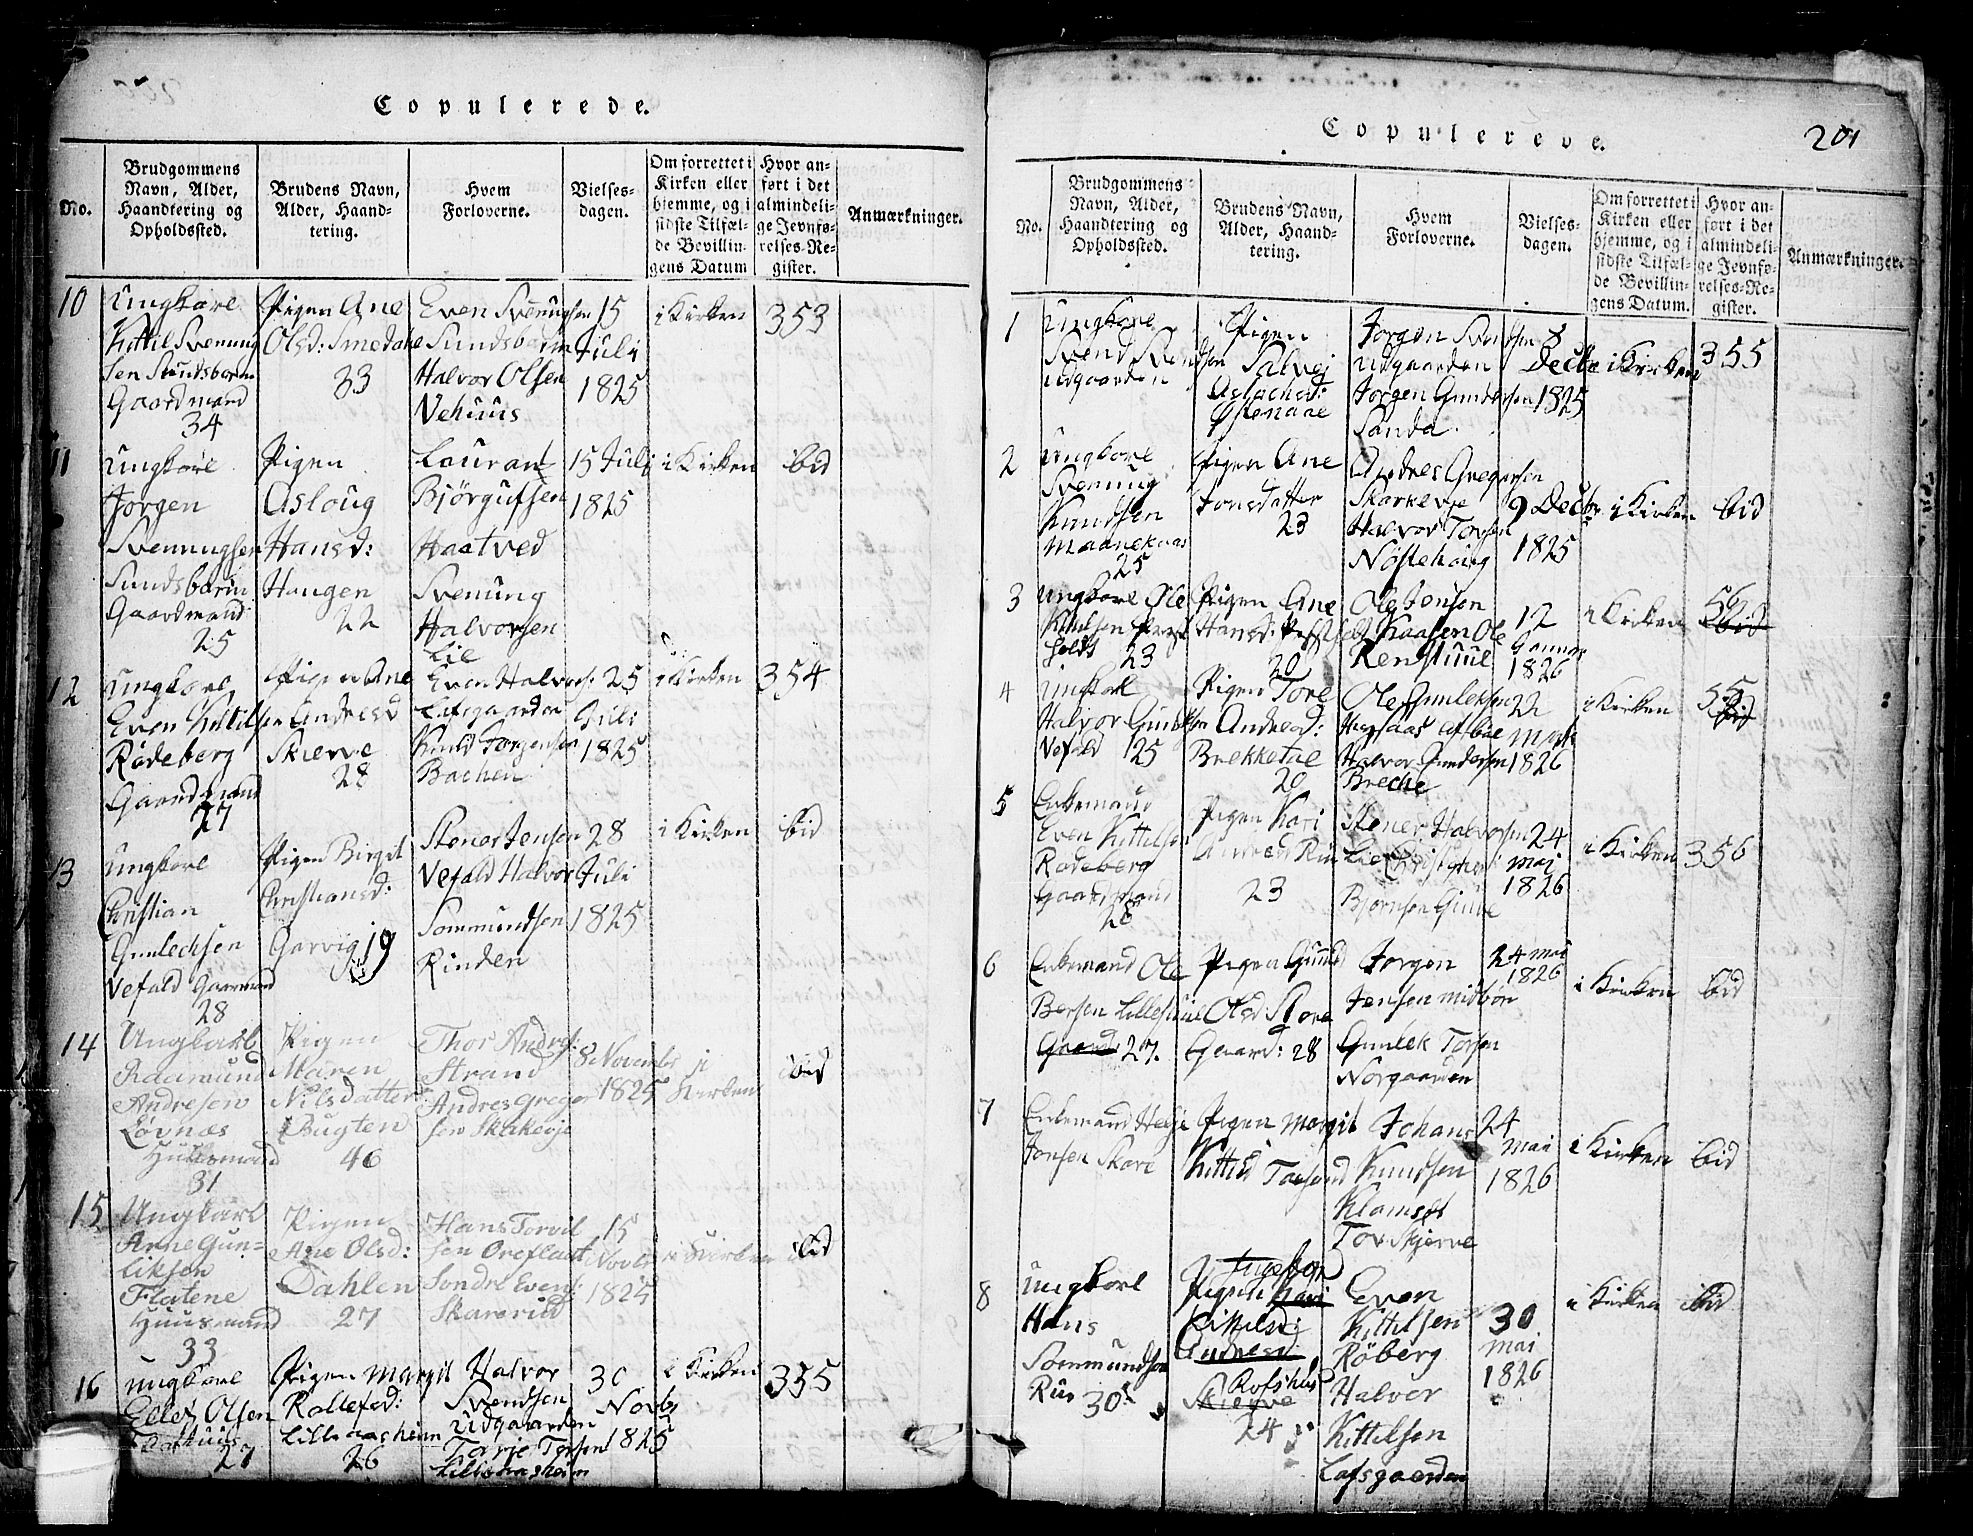 Copulerede.
No.
Brudgommens Navn, Alder, Haandtering og Opholdssted.
Brudens Navn, Alder, Haandtering.
Hvem Forloverne.
Vielsesdagen.
Om forrettet i Kirken eller hjemme, og i sidste Tilfælde Bevillingens Datum
Hvor anført i det almindelige Jevnførelses-Register.
Anmærkninger.
10
Ungkarl
Kittil Svenung
sen Sundsbarm
Gaardmand
34
Pigen Ane
Olsd: Smedale
33
Even Svenugsen
Sundsbarm
Halvor Olsen
Vehuus
15
Juli
1825
i Kirken
353
11
Ungkarl
Jørgen
Svenungsen
Sundsbarm
Gaardmand
25
Pigen
Asloug
Hansd:
Haugen
22
Laurant
Bjørgufsen
Haatved
Svenung
Halvorsen
Lie
15 Juli
1825
i Kirken
ibid
12
Ungkarl
Even Kittilsen
Rødeberg
Gaardmand
27
Pigen Ane
Andresd
Skierve
28
Even Halvors:
Lafsgaarden
Knud Jørgensen
Bachen
25
Juli
1825
i Kirken
354
13
Ungkarl
Christian
Gunlechsen
Vefald Gaarmand
28
Pigen Birgit
Christiansd:
Garvig 19
Stener Jensen
Vefald Halvor
Sommundsen
Rinden
28
Juli
1825
i Kirken
ibid
14
Ungkarl
Raamund
Andresen
Løvnæs
Huusmand
31
Pigen
Maren
Nilsdatter
Bugten
46
Thor Andrs:
Strand
Andres Greger
sen Skakevje
8 Novembr
1825
i
Kirken
ibid
15
Ungkarl
Arne Gun-
liksen
Flatene
Huusmand
33
Pigen
Ane Olsd:
Dahlen
27
Hans Torvil
sen Oreflaat
Sondre Evens:
Skarerud
15
Novbr
1825
i Kirken
ibid
16
Ungkarl
Ellef Olsen
27
Pigen Margit
Rollefsd:
Lilleaasheim
26
Halvor
Svendsen
Udgaarden
Tarje Torsen
Lilleaasheim
30
Novbr
1825
i Kirken
355
Copulerede.
201
No.
Brudgommens Navn, Alder, Haandtering og Opholdssted.
Brudens Navn, Alder, Haandtering.
Hvem Forloverne.
Vielsesdagen.
Om forrettet i Kirken eller hjemme, og i sidste Tilfælde Bevillingens Datum.
Hvor anført i det almindelige Jevnførelses-Register.
Anmærkninger.
1
Ungkarl
Svend Svendsen
Udgaarden
Pigen
Salvej
Aslachsd:
Østenaae
Jørgen Svendsen
Udgaarden
Jørgen Gundersen
Sanda
8
Decbr
1825
i Kirken
355
2
Ungkarl
Svenung
Knudsen
Maaneknas
25
Pigen Ane
Jonsdatter
23
Andres Gregersen
Skarkevje
Halvor Torsen
Nøstehoug
9 Decbr
1825
i Kirken
ibid
3
Ungkarl Ole
Knudsen
23
Pigen Ane
Hansd:
20
Ole Jensen
Kaasen Ole
12
Januar
1826
i Kirken
56
ibid
4
Ungkarl
Halvor
Vefald 25
Pigen Tore
Andread:
Brekketae
20
Ole Gunleksen
Halvor Gundersen
Breche
22
Marts
1826
i Kirken
55
ibid
5
Enkemand
Even Kittilsen
Rødeberg
Gaardmand
28
Pigen Kari
23
Stener Halvorsen
Lie
Bjørnsen
24
Maj
1826
i Kirken
356
6
Enkemand Ole
Bersen Lillestuul
Gaard: 27.
Pigen Gunild
Olsd Store
Gaard: 28
Jørgen
Jensen Midbøe
Gunlek Torsen
Norgaarden
24 Mai
1826
i Kirken
ibid
7
Enkemand Helje
Jonsen Skare
Pigen Margit
Kittilsd
Johans
Knudsen
Klomset
Tov Skjerve
24
Mai
1826
i Kirken
ibid
8
Ungkarl
Hans
Sommundsen
Rue
30
Ingebor
Pigen Kari
Kittilsd:
Andresd
Rofshus
Skierve
24
Even
Kittilsen
Røberg
Halvor
Kittilsen
Lafsgaarden
30
Mai
1826
i Kirken
ibid